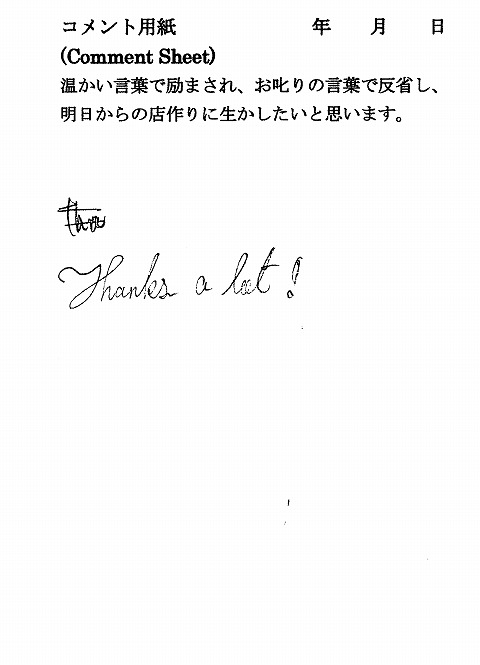 コメント用紙 年 月 日
(Comment Sheet)
温かい言葉で励まされ、お叱りの言葉で反省し、
明日からの店作りに生かしたいと思います。
Thanks a lot!